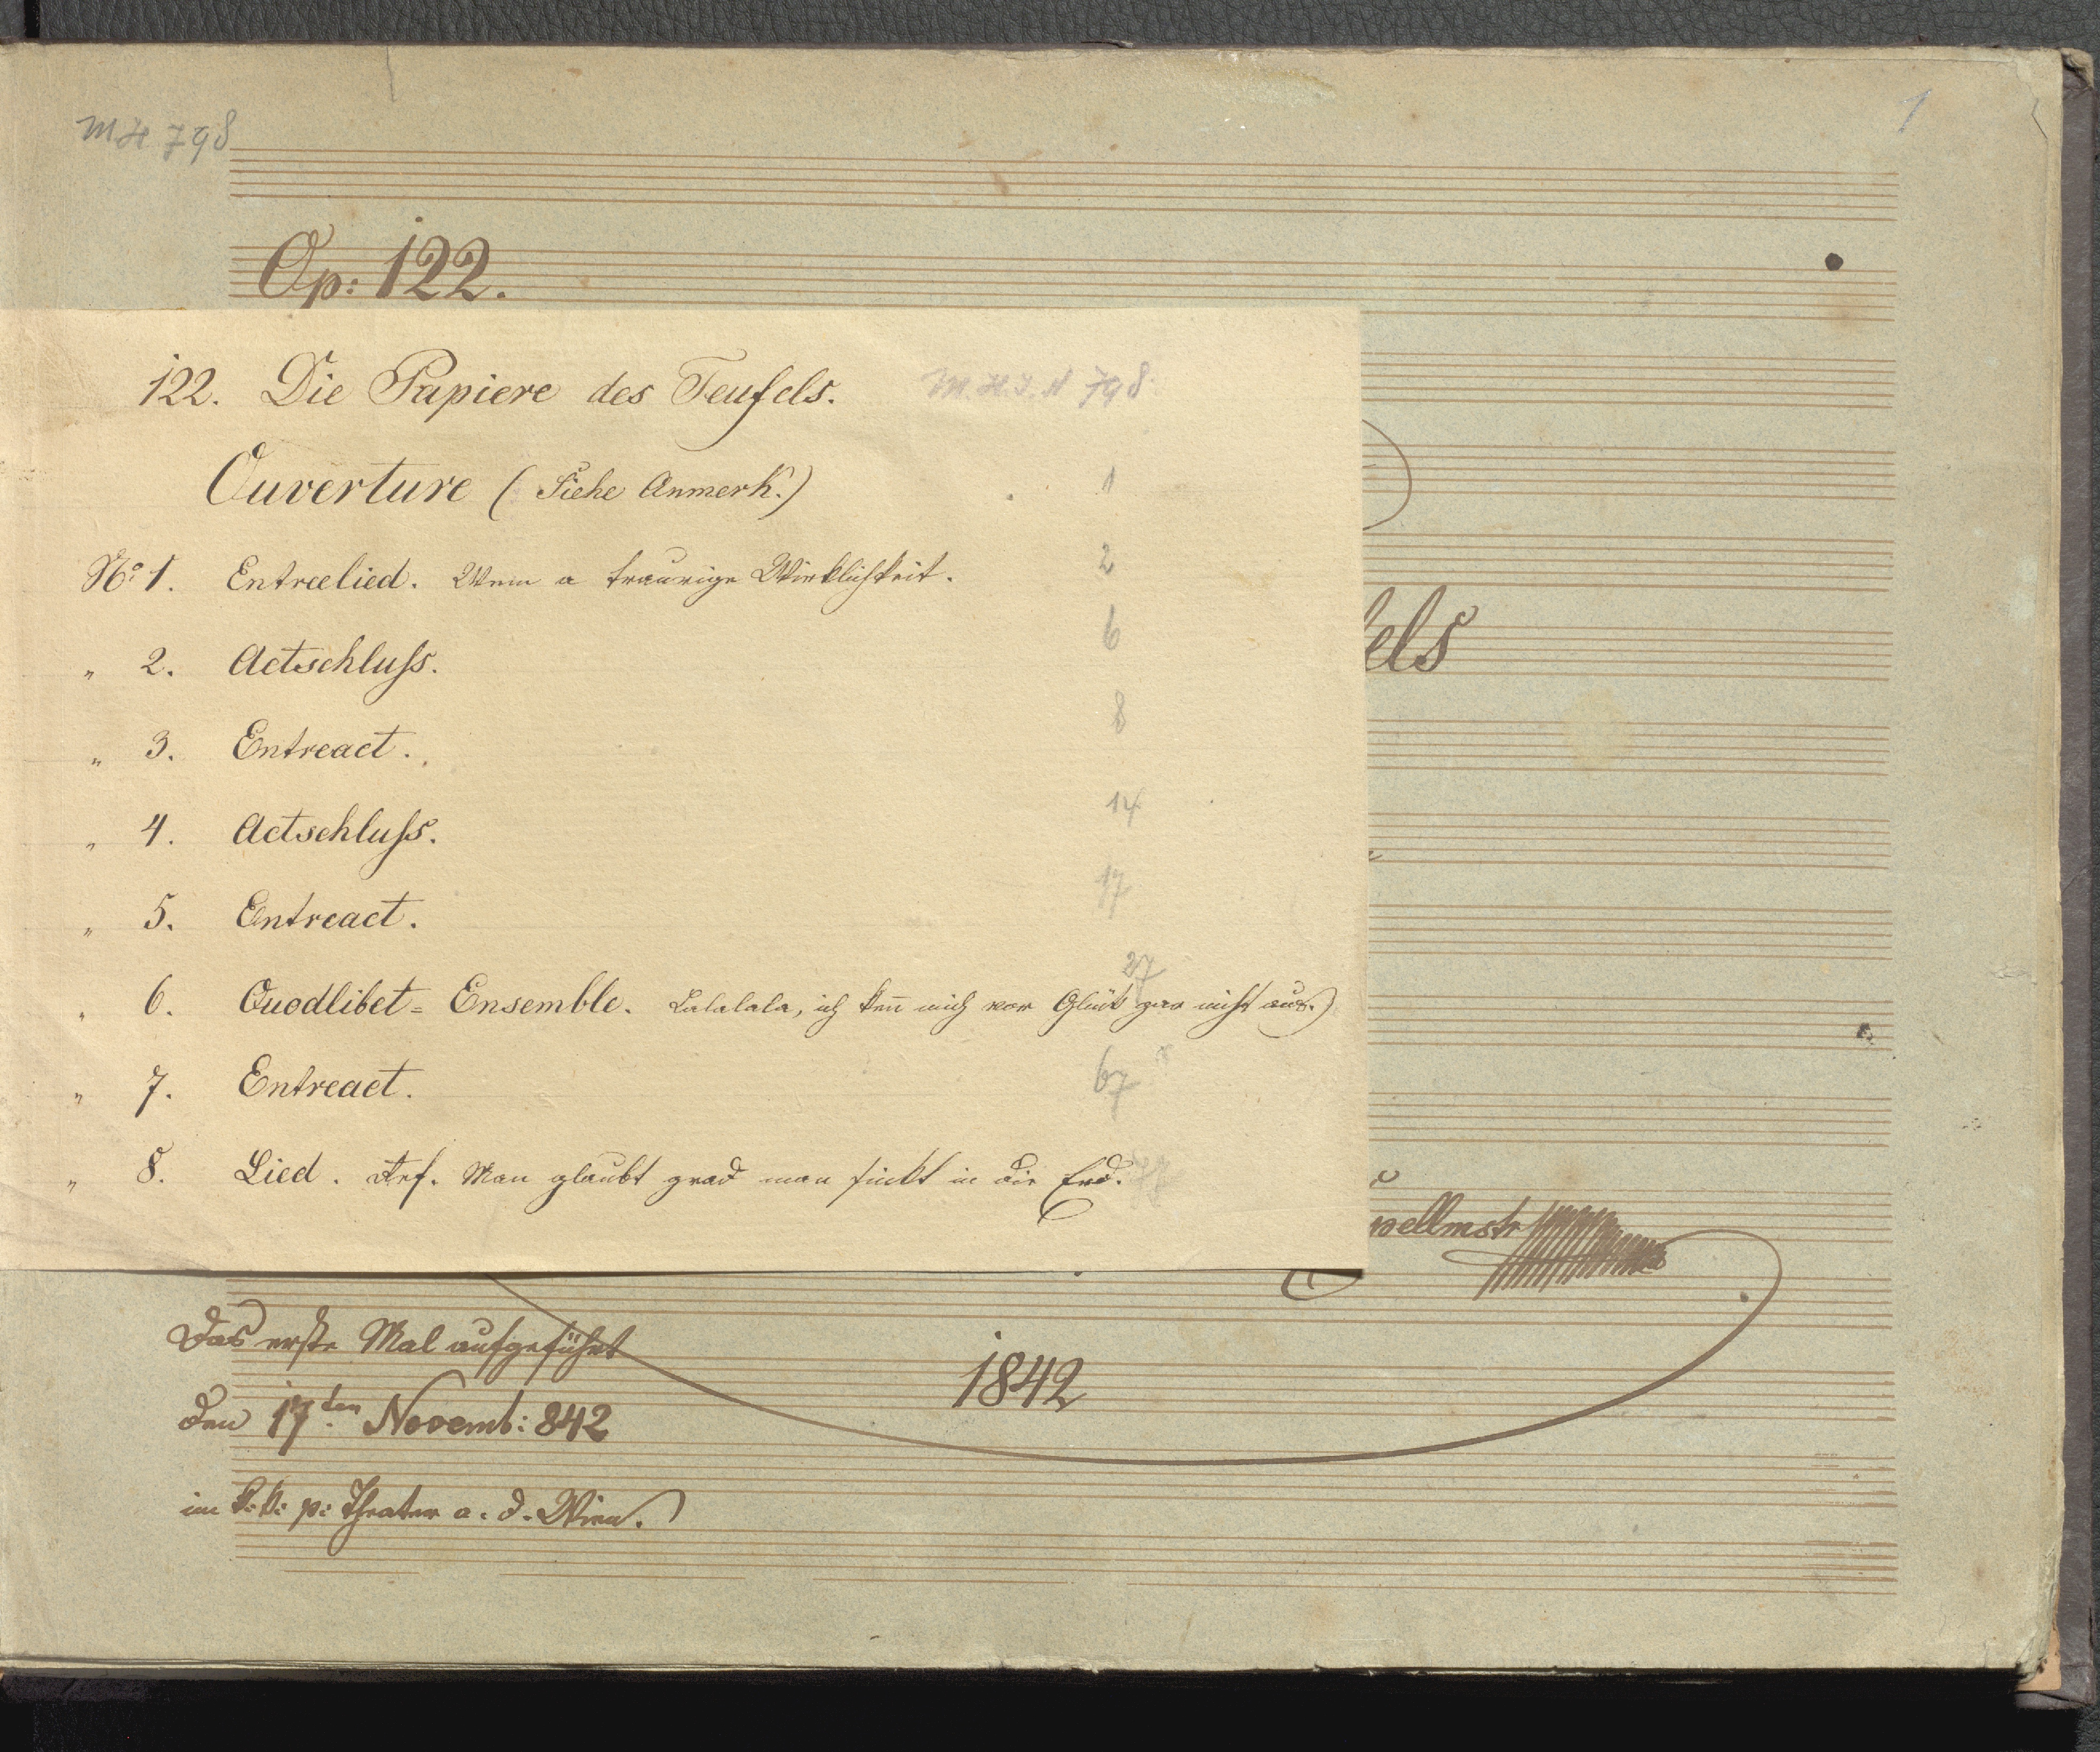 MH 798
1
Op: 122.
122. Die Papiere des Teufels. M.H.I.N 798.
Ouverture (Siehe Anmerk.) 1
No: 1. Entreelied. Wem a traurige Wirklichkeit. 2
" 2. Actschluss. 6
" 3. Entreact. 8
" 4. Actschluss. 14
" 5. Entreact. 17
" 6. Quodlibet=Ensemble. Lalalala, ich kenn mich vor Glück gar nicht aus.) 27
" 7. Entreact. 67
" 8. Lied. Ref. Man glaubt grad man sinkt in die Erd. 77
els
pellmstr
Das erste Mal aufgeführt
den 17ten Novemb: 842
im k: k: p: Theater a. d. Wien.
1842